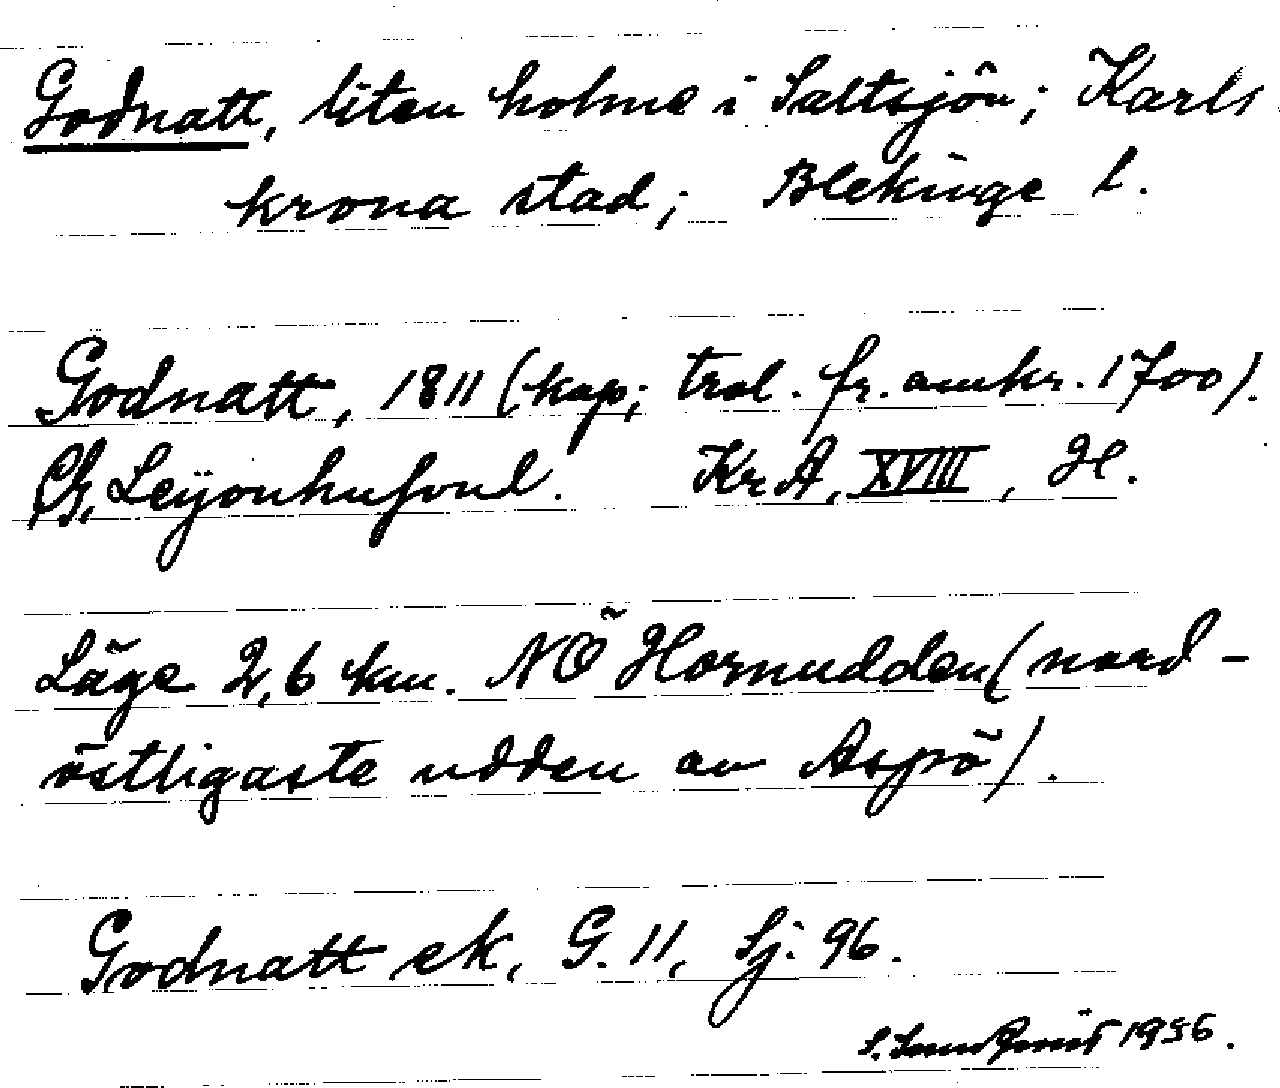 Godnatt, liten holme i Saltsjön; Karls
krona stad; Blekinge l.
Godnatt, 1811 (kop; trol. fr. omkr. 1700).
Leijonhufvud. KrA, XVIII, H.
Läge 2,6 km. NÖ Hornudden (nord-
östligaste udden av Aspö).
Godnatt ek, G. 11, Sj. 96.
S. 1956.